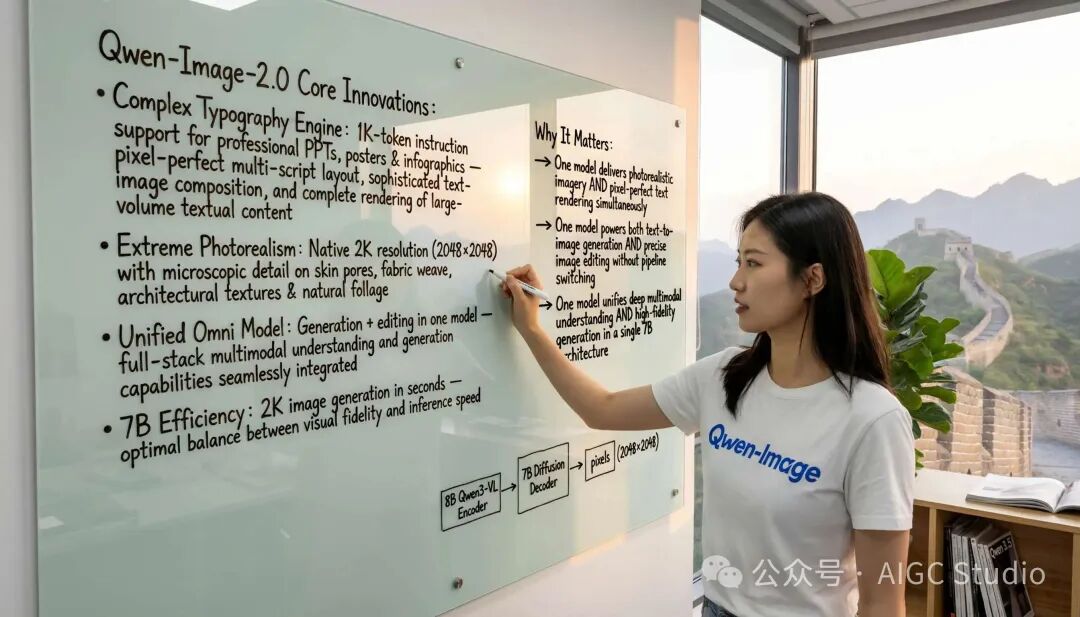 Qwen-Image-2.0 Core Innovations:
• Complex Typography Engine: 1K-token instruction
support for professional PPTs, posters & infographics —
pixel-perfect multi-script layout, sophisticated text-
image composition, and complete rendering of large-
volume textual content
• Extreme Photorealism: Native 2K resolution (2048×2048)
with microscopic detail on skin pores, fabric weave,
architectural textures & natural foliage
• Unified Omni Model: Generation + editing in one model —
full-stack multimodal understanding and generation
capabilities seamlessly integrated
• 7B Efficiency: 2K image generation in seconds —
optimal balance between visual fidelity and inference speed
Why It Matters:
→ One model delivers photorealistic
imagery AND pixel-perfect text
rendering simultaneously
→ One model powers both text-to-
image generation AND precise
image editing without pipeline
switching
→ One model unifies deep multimodal
understanding AND high-fidelity
generation in a single 7B
architecture
8B Qwen3-VL
Encoder
→
7B Diffusion
Decoder
→
pixels
(2048×2048)
Qwen-Image
Qwen 3.5
公众号 · AIGC Studio